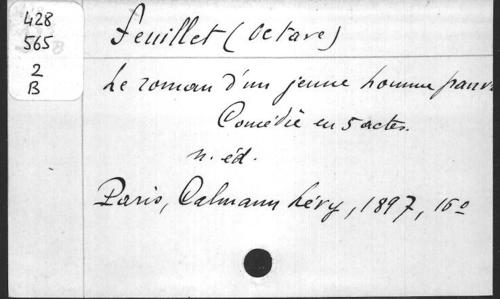 428
565
2
B
Feuillet (Octave)
Le roman d'un jeune homme pauvre
Comédie en 5 actes.
n. éd.
Paris, Calmann Lévy, 1897, 16º